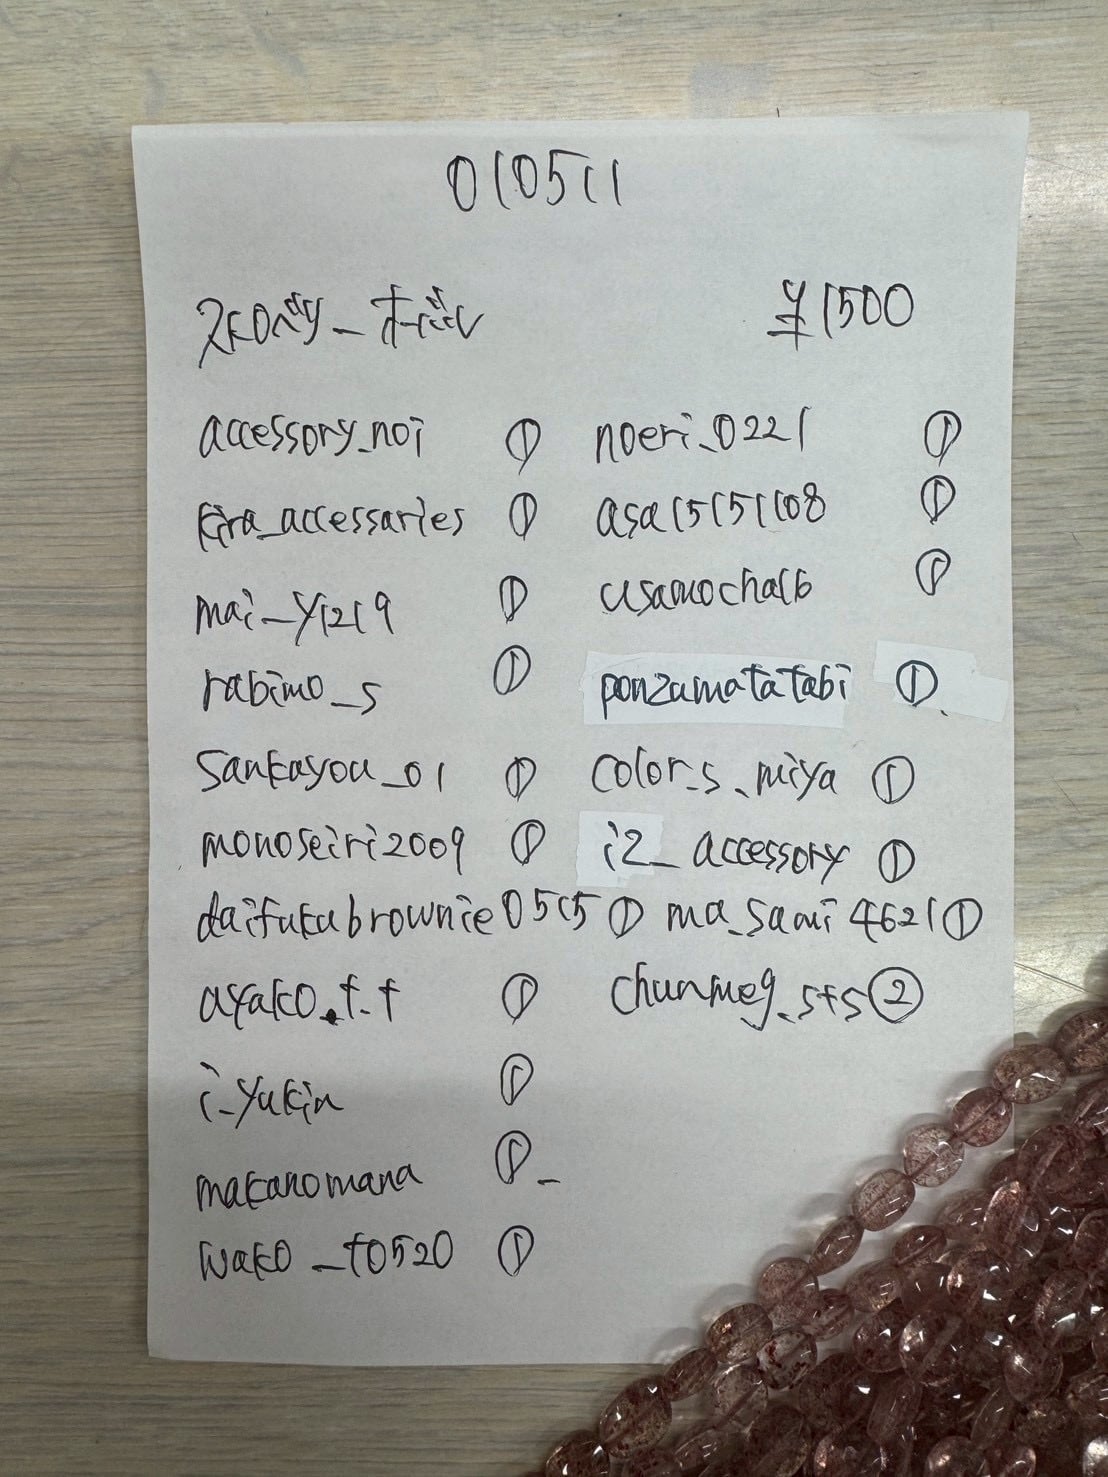 010511
ストロベリー オーバル ¥1500
accessory_noi ① noeri_0221 ①
kira_accessaries ① asa15151108 ①
mai_y1219 ① usamocha16 ①
rabimo_s ① ponzumatatabi ①
sankayou_01 ① color_s_miya ①
monoseiri2009 ① i2_accessory ①
daifukubrownie0515 ① ma_sami4621 ①
ayako.t.t ① chunmeg_sts ②
i_yukin ①
makanomana ①
wako_t0520 ①